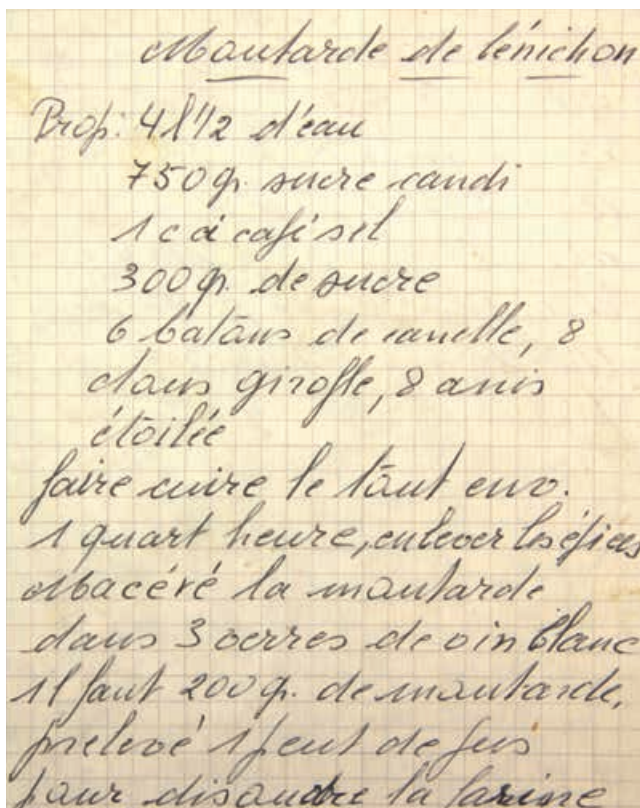 Moutarde de bénichon
Prop: 4 l 1/2 d'eau
750 gr. sucre candi
1 c à café sel
300 gr. de sucre
6 batons de canelle, 8
clous girofle, 8 anis
étoilée
faire cuire le tout env.
1 quart heure, enlever les épices
Macéré la moutarde
dans 3 verres de vin blanc
Il faut 200 gr. de moutarde,
prelevé 1 peut de jus
pour disoudre la farine